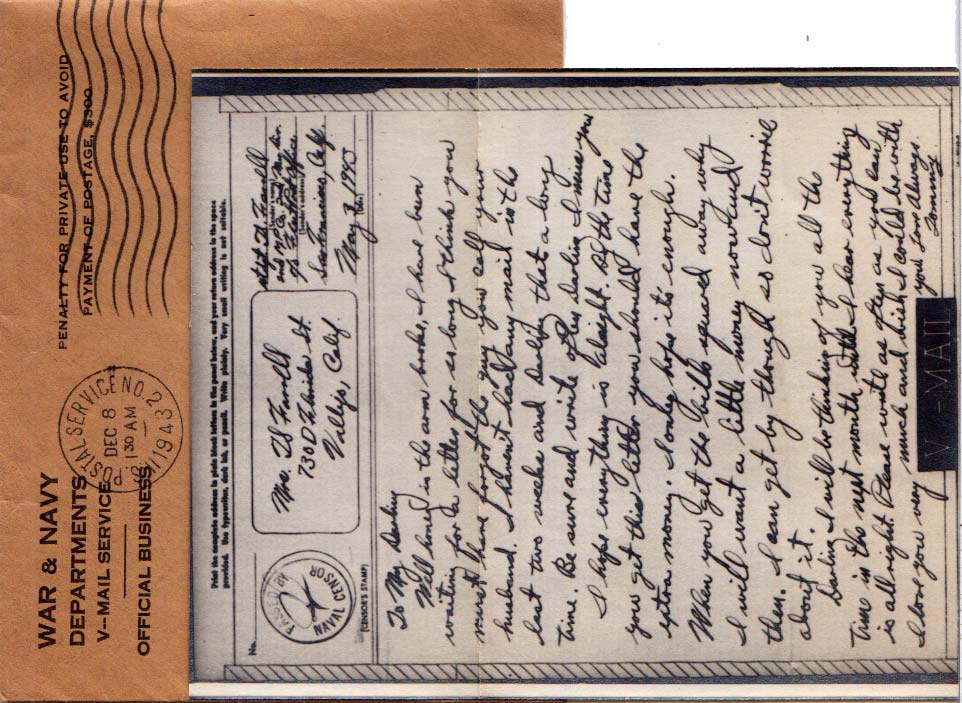 WAR & NAVY
DEPARTMENTS
V--MAIL SERVICE
OFFICIAL BUSINESS
POSTAL SERVICE NO. 2
DEC 8
1 30 AM
1943
PENALTY FOR PRIVATE USE TO AVOID
PAYMENT OF POSTAGE, $300
Print the complete address in plain block letters in the panel below, and your return address in the space
provided. Use typewriter, dark ink, or pencil. Write plainly. Very small writing is not suitable.
No.
PASSED BY
NAVAL CENSOR
(CENSOR'S STAMP)
Mrs. TD Farrell
730 D St.
Vallejo, Calif.
T. D. Farrell
San Francisco, Calif.
1943
To My Darling
Well honey in the arm broke, I have been
waiting for a letter for so long I think you
must have forgot the guy you call your
husband. I haven't had any mail in the
last two weeks and darling that a long
time. Be sure and write often darling I miss you
I hope everything is alright. By the time
you get this letter you should have the
extra money. I only hope its enough.
When you get the bills squared away why
I will want a little money now and
then. I can get by though so don't worrie
about it.
Darling I will be thinking of you all the
time in the next month until I hear everything
is all right. Please write as often as you can
I love you very much and wish I could be with
you. Love always
Tommy
V - MAIL